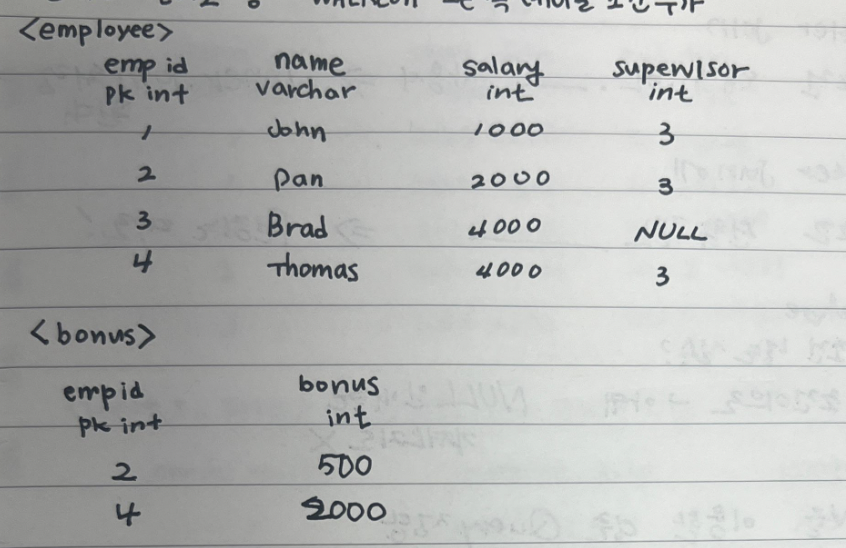 <employee>
emp id name salary supervisor
pk int varchar int int
1 John 1000 3
2 Dan 2000 3
3 Brad 4000 NULL
4 Thomas 4000 3
<bonus>
empid bonus
pk int int
2 500
4 2000